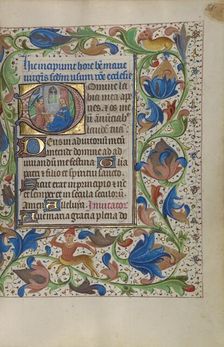 Hic incipiunt hore bte marie
virginis scdm usum roe ecclesie
Domine la
bia mea a
peries
Et os meum
annuncia
laudē tuā
Deus in adiutoriū meū
intende Domine ad ad
iuuandū me festina Glia
patri et filio et spiritui sancto
Sicut erat in principio et nunc
et semper et in secula seculorū
amen Alleluya Inuitator
Aue maria gracia plena do